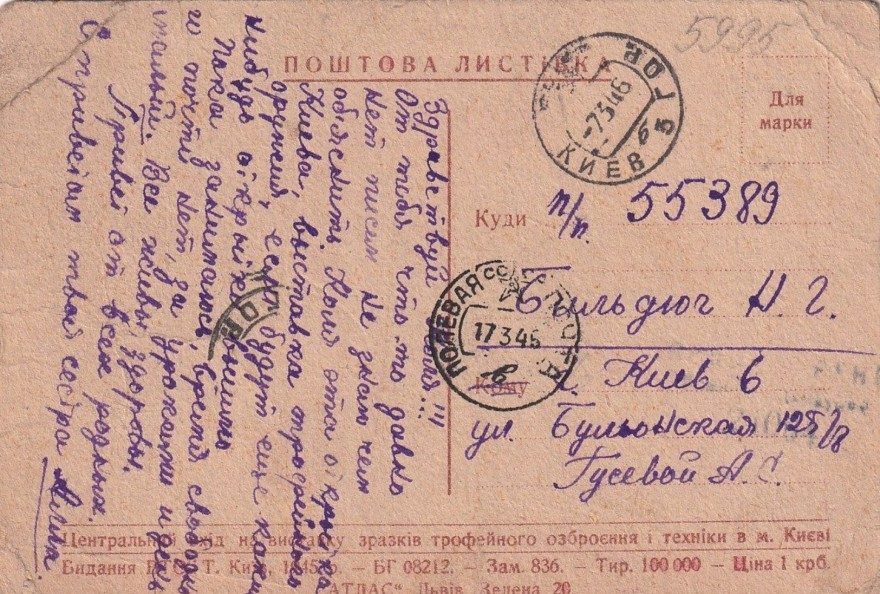 5995
ПОШТОВА ЛИСТІВКА
Для
марки
КИЕВ
-7346
Куди
п/п. 55389
Бильдюг Н. Г.
ПОЛЕВАЯ
17346
Кому
г. Киев 6
ул. Бульонская 125/8
Гусевой А. С.
Здравствуй Коля!!!
От тебя что-то давно
нет писем не знаю чем
об'яснить. Коля эта открытка
Киева, выставка трофейного
оружия, если будут еще какие
нибудь открытки вышлю
Пока занималась, время свободно
го почти нет, за уроками и день
малый. Все живы, здоровы.
Привет от всех родных.
С приветом твоя сестра
Центральний вхід на виставку зразків трофейного озброєння і техніки в м. Києві
Видання Т. Київ, 1945 р. — БГ 08212. — Зам. 836. — Тир. 100 000 — Ціна 1 крб.
"АТЛАС" Львів, Зелена 20